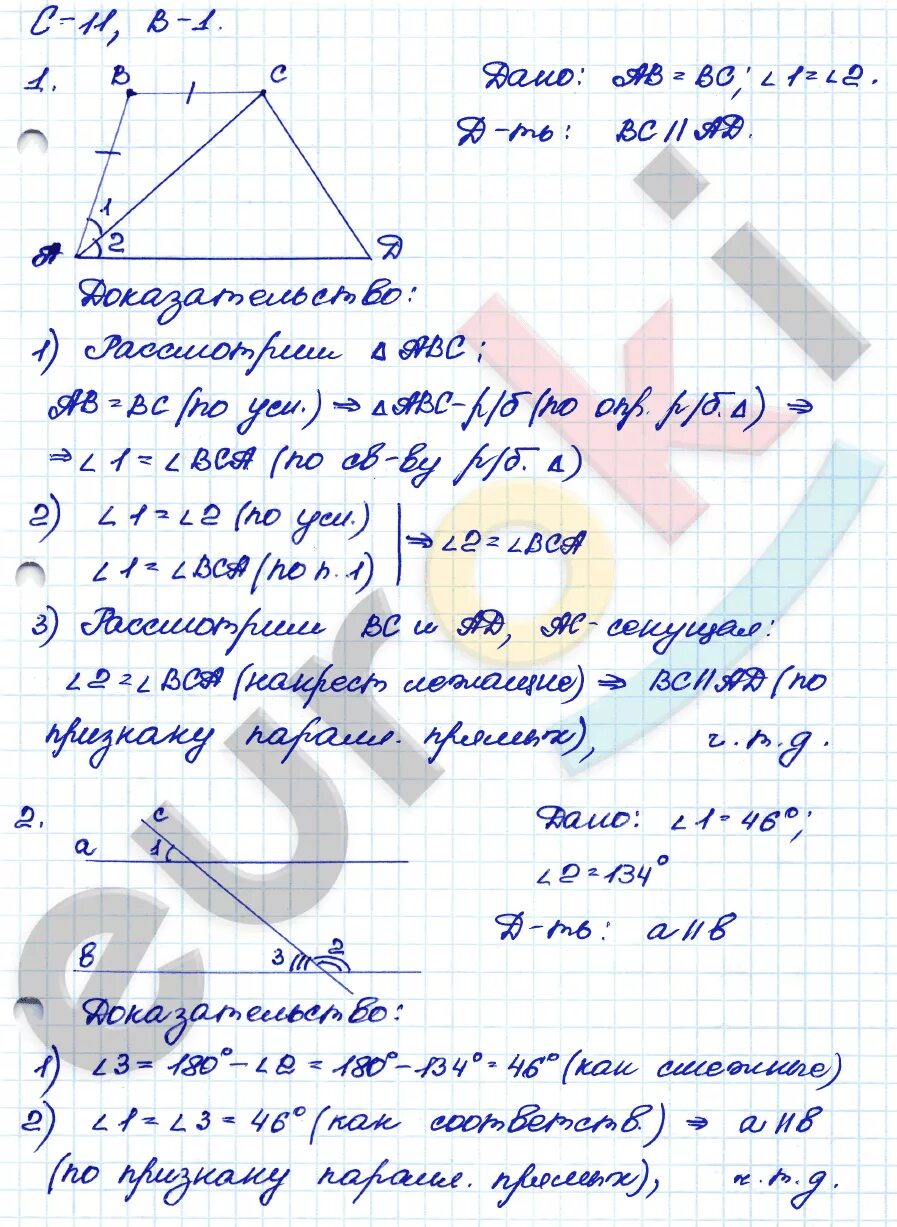 С-11, В-1.
1.
B
C
Дано: AB = BC; ∠1 = ∠2.
Д-ть: BC || AD.
1
2
A
D
Доказательство:
1) Рассмотрим △ ABC;
AB = BC (по усл.) ⇒ △ABC - р/б (по опр. р/б. △) ⇒
⇒ ∠1 = ∠BCA (по св-ву р/б. △)
2) ∠1 = ∠2 (по усл.)
∠1 = ∠BCA (по п. 1)
⇒ ∠2 = ∠BCA
3) Рассмотрим BC и AD, AC - секущая:
∠2 = ∠BCA (накрест лежащие) ⇒ BC || AD (по
признаку паралл. прямых), ч.т.д.
2.
c
a
1
Дано: ∠1 = 46°;
∠2 = 134°
Д-ть: a || b
b
3
2
Доказательство:
1) ∠3 = 180° - ∠2 = 180° - 134° = 46° (как смежные)
2) ∠1 = ∠3 = 46° (как соответств.) ⇒ a || b
(по признаку паралл. прямых), ч.т.д.
euroki